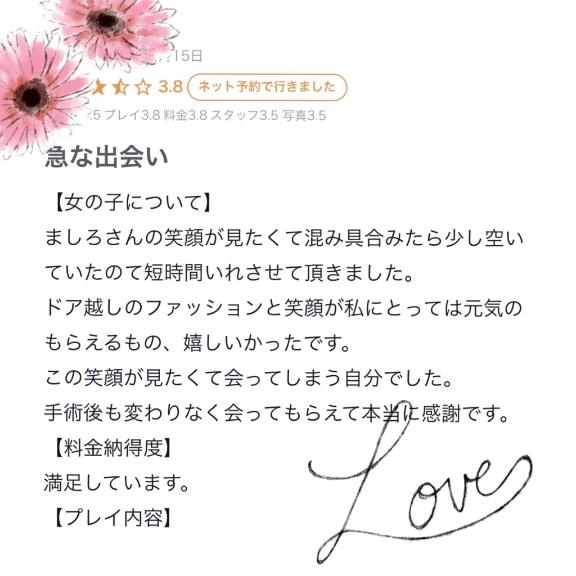 15日
3.8 ネット予約で行きました
5 プレイ3.8 料金3.8 スタッフ3.5 写真3.5
急な出会い
【女の子について】
ましろさんの笑顔が見たくて混み具合みたら少し空い
ていたのて短時間いれさせて頂きました。
ドア越しのファッションと笑顔が私にとっては元気の
もらえるもの、嬉しいかったです。
この笑顔が見たくて会ってしまう自分でした。
手術後も変わりなく会ってもらえて本当に感謝です。
【料金納得度】
満足しています。
【プレイ内容】
Love